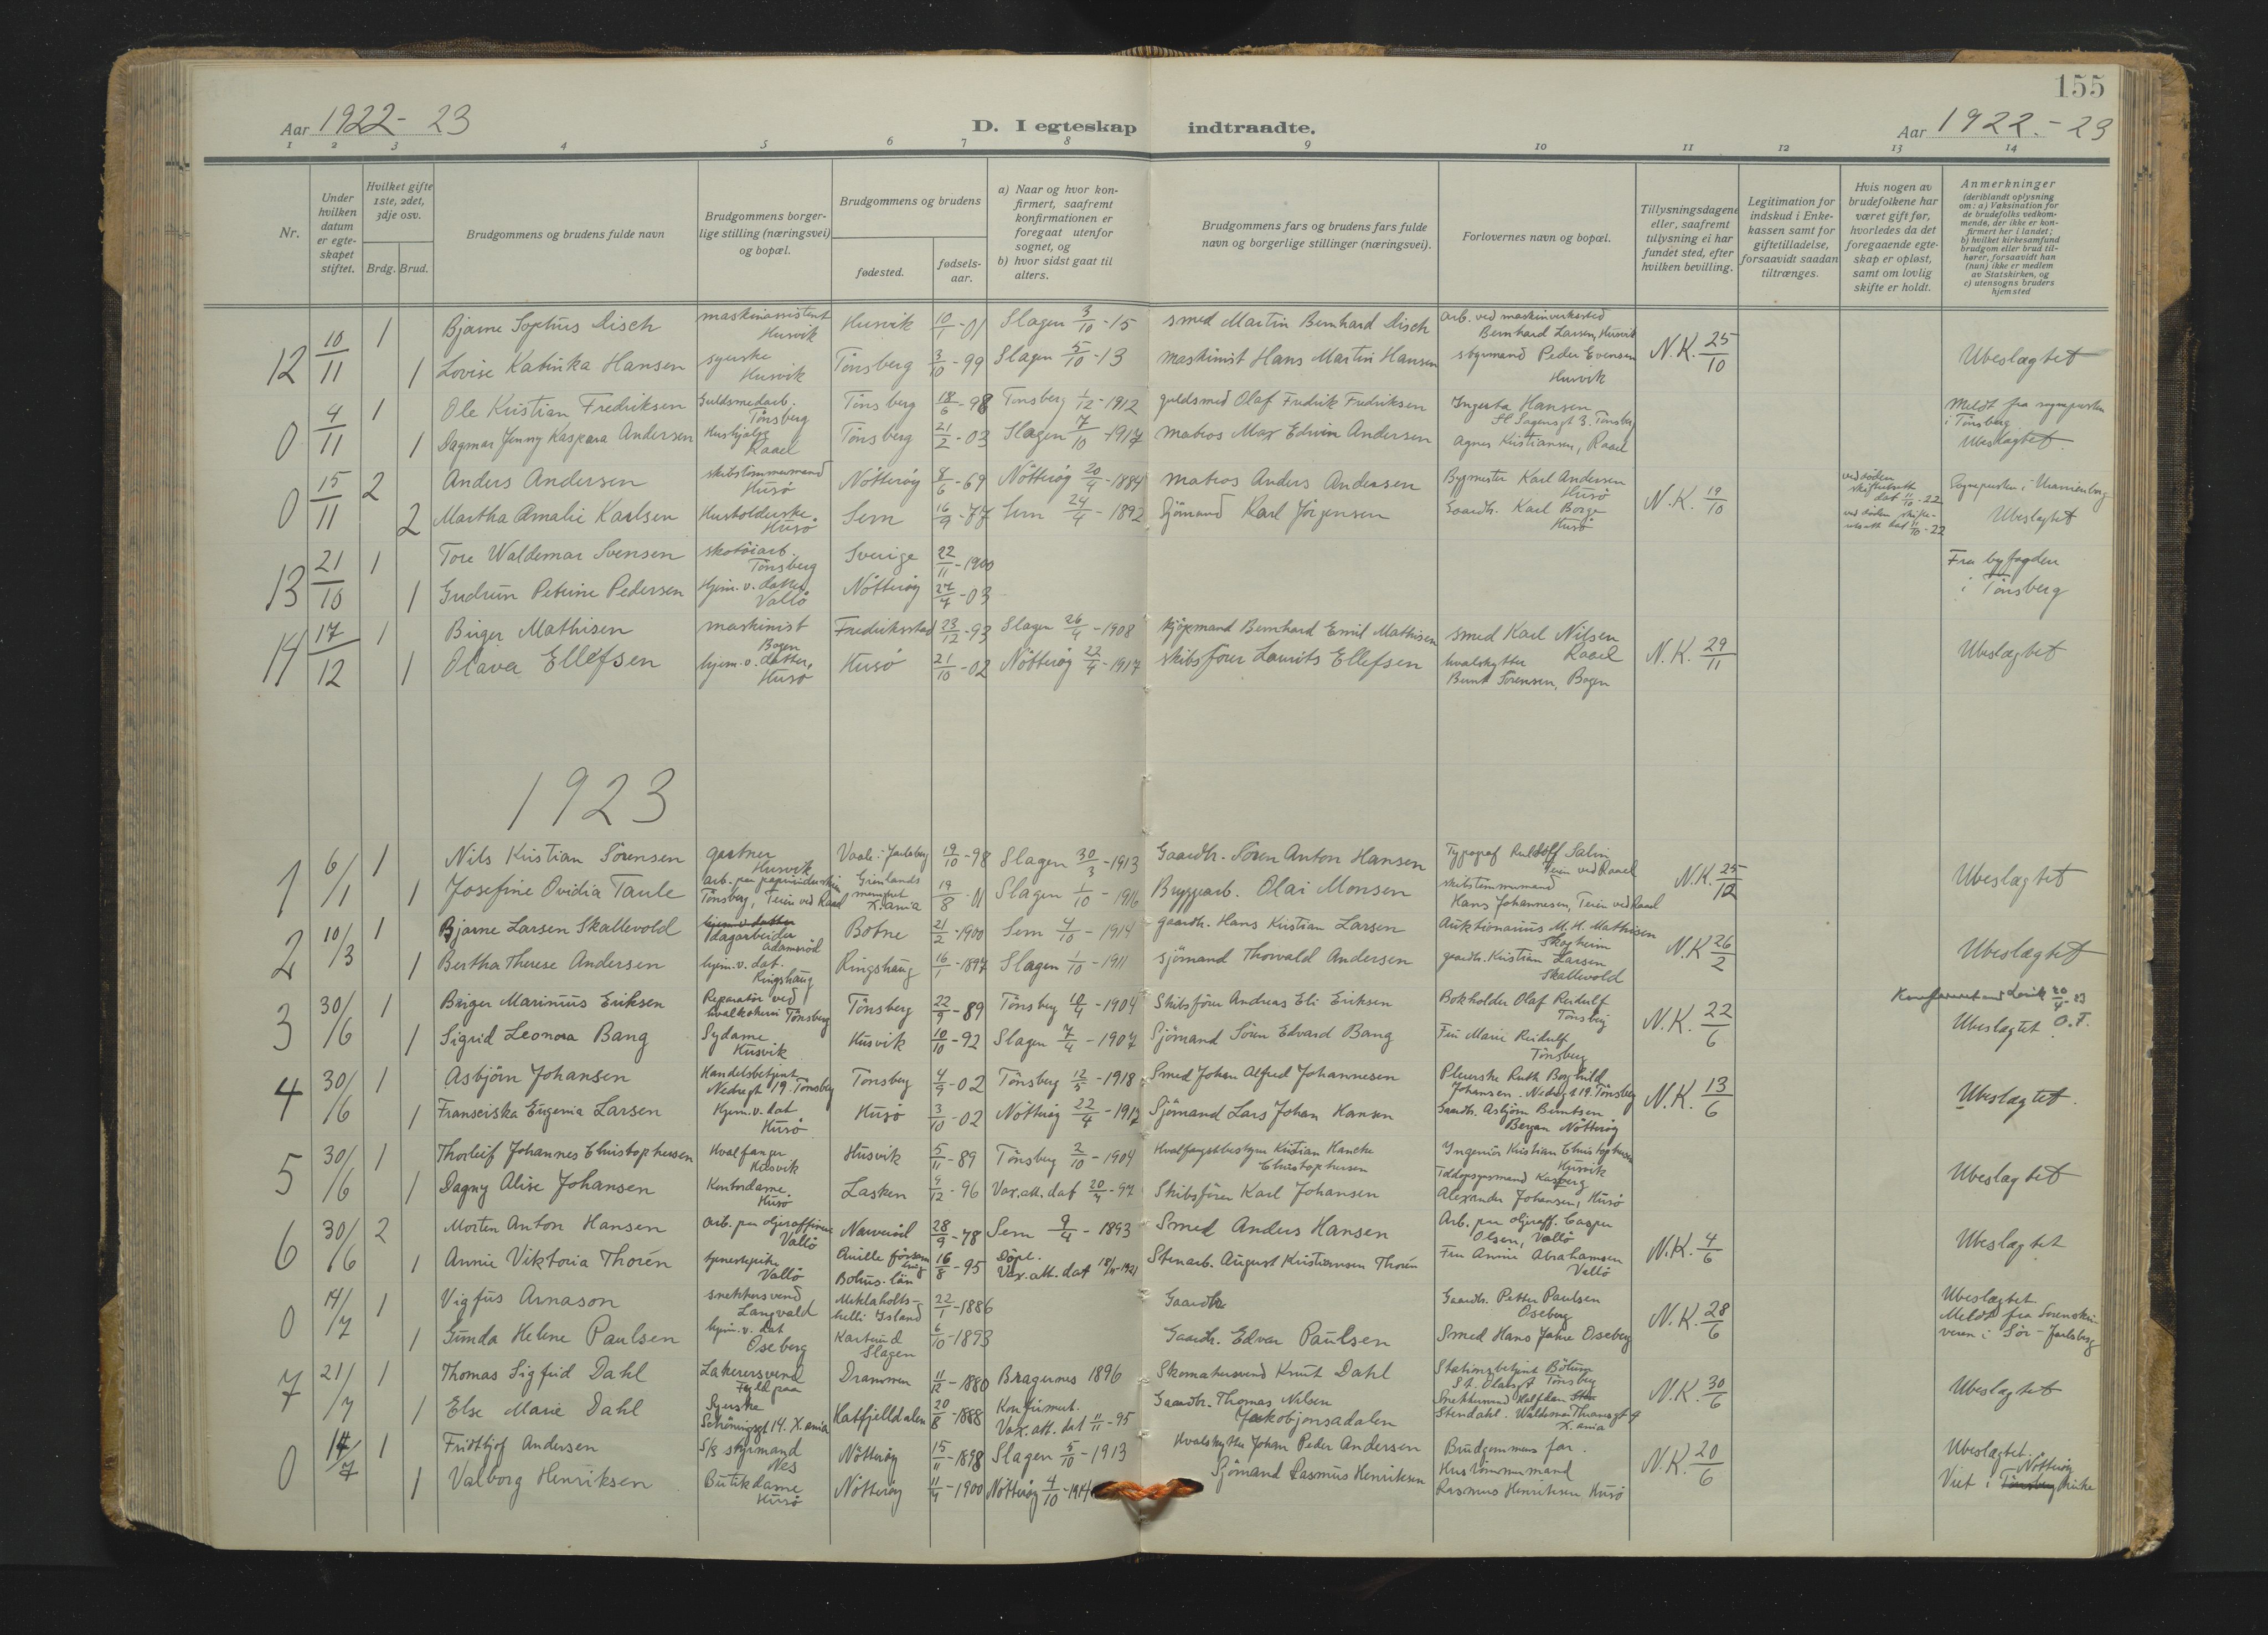 155
Aar 1922-23
D. I egteskap indtraadte.
Aar 1922.-23
1 2 3 4 5 6 7 8 9 10 11 12 13 14
Nr.
Under hvilken datum er egteskapet stiftet.
Hvilket gifte 1ste, 2det, 3dje osv.
Brdg. Brud.
Brudgommens og brudens fulde navn
Brudgommens borgerlige stilling (næringsvei) og bopæl.
Brudgommens og brudens
fødested.
fødsels-aar.
a) Naar og hvor konfirmert, saafremt konfirmationen er foregaat utenfor sognet, og
b) hvor sidst gaat til alters.
Brudgommens fars og brudens fars fulde navn og borgerlige stillinger (næringsvei).
Forlovernes navn og bopæl.
Tillysningsdagene eller, saafremt tillysning ei har fundet sted, efter hvilken bevilling.
Legitimation for indskud i Enkekassen samt for giftetilladelse, forsaavidt saadan tiltrænges.
Hvis nogen av brudefolkene har været gift før, hvorledes da det foregaaende egteskap er opløst, samt om lovlig skifte er holdt.
Anmerkninger (deriblandt oplysning om: a) Vaksination for de brudefolks vedkommende, der ikke er konfirmert her i landet; b) hvilket kirkesamfund brudgom eller brud tilhører, forsaavidt han (hun) ikke er medlem av Statskirken, og c) utensogns bruders hjemsted
12 10/11 1 Bjarne Sophus Disch maskinassistent Husvik Husvik 10/1-01 Slagen 3/10-15 smed Martin Bernhard Disch Arb. ved maskinverksted Bernhard Larsen, Husvik N.K. 25/10 Ubeslægtet
1 Lovise Katinka Hansen syerske Husvik Tönsberg 3/10-99 Slagen 5/10-13 maskinist Hans Martin Hansen styrmand Peder Evensen Husvik
0 4/11 1 Ole Kristian Fredriksen Guldsmedarb. Tönsberg Tönsberg 18/6-98 Tönsberg 1/12-1912 guldsmed Olaf Fredrik Fredriksen Ingerta Hansen Tönsberg Meldt fra sognepresten i Tönsberg
1 Dagmar Jenny Kaspara Andersen Hushjælp Raael Tönsberg 21/2-03 Slagen 7/10-1917 matros Max Edwin Andersen Agnes Kristiansen, Raael Ubeslægtet
0 15/11 2 Anders Andersen skibstömmermand Husö Nötteröy 8/6-69 Nötteröy 20/4-1884 matros Anders Andersen Bygmester Karl Andersen Husö N.K. 19/10 ved döden skifteattest dat 11/10-22 Sognepresten i Uranienborg
2 Martha Amalie Karlsen Husholderske Husö Sem 16/9-77 Sem 24/4-1892 Sjömand Karl Jörgensen Gaardbr. Karl Borge Husö ved döden skifteattest dat 11/10-22 Ubeslægtet
13 21/10 1 Tore Waldemar Svensen skotöiarb. Tönsberg Sverige 22/11-1900 Fra byfogden i Tönsberg
1 Gudrun Petrine Pedersen Hjem. v. datter Vallö Nötteröy 27/4-03
14 17/12 1 Birger Mathisen maskinist Bogen Fredriksstad 23/12-93 Slagen 26/4-1908 kjöpmand Bernhard Emil Mathisen smed Karl Nilsen Raael N.K. 29/11 Ubeslægtet
1 Olava Ellefsen hjem. v. datter, Husö Husö 21/10-02 Nötteröy 22/4-1917 skibsförer Laurits Ellefsen hvalskytter Bernt Sörensen, Bogen
1923
1 6/1 1 Nils Kristian Sörensen gartner Husvik Vaale i Jarlsberg 19/10-98 Slagen 30/3-1913 Gaardbr. Sören Anton Hansen Typograf Rudolf Salin Teien ved Raael N.K. 25/12 Ubeslægtet
1 Josefine Ovidia Taule Tönsberg, Teien ved Raael Grönlands menighet X.ania 19/8-01 Slagen 1/10-1916 Bryggearb. Olai Monsen skibstömmermand Hans Johannesen, Teien ved Raael
2 10/3 1 Bjarne Larsen Skallevold hjem v datter dagarbeider Adamsröd Botne 21/2-1900 Sem 4/10-1914 gaardbr. Hans Kristian Larsen Auktionarius M. H. Mathisen Skogheim N.K 26/2 Ubeslægtet
1 Bertha Therese Andersen hjem. v. dat. Ringshaug Ringshaug 16/1-1897 Slagen 1/10-1911 sjömand Thorvald Andersen gaardbr. Kristian Larsen Skallevold
3 30/6 1 Birger Marinius Eriksen Reparatör ved hvalkokeri Tönsberg Tönsberg 22/9-89 Tönsberg 10/4-1904 Skibsförer Andreas Eli Eriksen Bokholder Olaf Reidulf Tönsberg N.K. 22/6
1 Sigrid Leonora Bang Sydame Husvik Husvik 10/10-92 Slagen 7/4-1907 Sjömand Sören Edvard Bang Fru Marie Reidulf Tönsberg Ubeslægtet O.F.
4 30/6 1 Asbjörn Johansen Handelsbetjent Nedregt 19. Tönsberg Tönsberg 4/9-02 Tönsberg 12/5-1918 Smed Johan Alfred Johannesen Pleierske Ruth Borghild Johansen. Nedregt 19. Tönsberg N.K. 13/6 Ubeslægtet.
1 Fransciska Eugenia Larsen Hjem. v. dat Husö Husö 3/10-02 Nötteröy 22/4-1917 Sjömand Lars Johan Hansen Gaardbr. Asbjörn Berntsen Bergan Nötteröy
5 30/6 1 Thorleif Johannes Christophersen Hvalfanger Husvik Husvik 5/11-89 Tönsberg 2/10-1904 Hvalfangstbestyrer Kristian Hancke Christophersen Ingeniör Kristian Christophersen Husvik Ubeslægtet
1 Dagny Alise Johansen Kontordame Husö Lasken 9/12-96 Vax. att. dat 20/4-97 Skibsförer Karl Johansen Toldopsynsmand Kasberg Alexander Johansen, Husö
6 30/6 2 Morten Anton Hansen Arb. paa oljeraffineri Vallö 28/9-78 Sem 9/4-1893 Smed Anders Hansen Arb. paa oljeraff. Casper Olsen, Vallö N.K. 4/6 Ubeslægtet
1 Annie Viktoria Thorén tjenestepike Vallö Qville församling Bohus-län 16/8-95 Döpt. Vax. att. dat 18/11-1921 Stenarb. August Kristiansen Thorén Fru Annie Abrahamsen Vallö
0 14/7 1 Vigfus Arnason snekkersvend Langvald Miklaholtshelli Island 22/1-1886 Gaardbr Gaardbr. Petter Paulsen Oseberg N.K. 28/6 Ubeslægtet Meldt fra Sorenskriveren i Sör-Jarlsberg
1 Gunda Helene Paulsen hjem. v. dat Oseberg Slagen 6/10-1893 Gaardbr. Edvar Paulsen Smed Hans Jahre Oseberg
7 21/7 1 Thomas Sigfrid Dahl Lakerersvend Drammen 11/12-1880 Bragernes 1896 Skomakersvend Knut Dahl Stationsbetjent St. Olavsgt Tönsberg N.K. 30/6 Ubeslægtet
1 Else Marie Dahl Syerske Schöningsgt 14. X.ania Hatfjelldalen 20/8-1888 Konfirmert. Vax. att. dat 11/11-95 Gaardbr. Thomas Nilsen Jakobjonsadalen Snekkersvend Halfdan Stendahl. Waldemar Thranesgt 9 X.ania
0 14/7 1 Fridtjof Andersen S/s styrmand Nes Nötteröy 15/11-1898 Slagen 5/10-1913 Hvalskytter Johan Peder Andersen Brudgommens far. N.K. 20/6 Ubeslægtet.
1 Valborg Henriksen Butikdame Husö Nötteröy 11/4-1900 Nötteröy 4/10-1914 Sjömand Rasmus Henriksen Hustömmermand Rasmus Henriksen Husö Viet i Tönsberg Nötteröy kirke